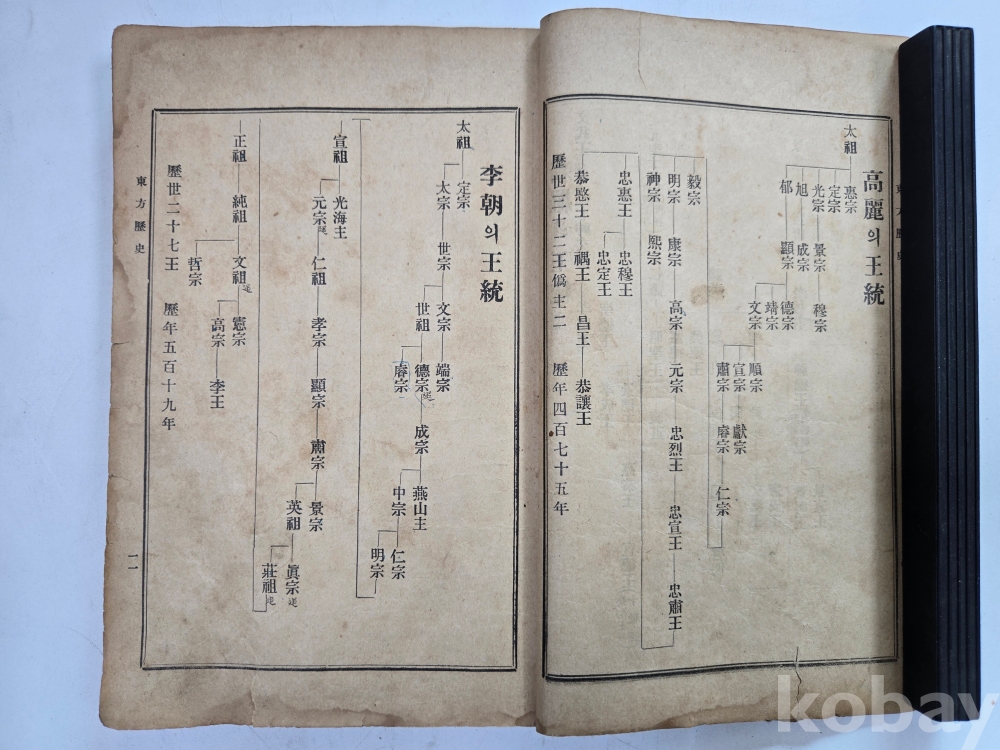 高麗의王統
太祖
惠宗
定宗
光宗 景宗 穆宗
旭 成宗
郁 顯宗
德宗
靖宗
文宗
順宗
宣宗 獻宗
肅宗 睿宗 仁宗
毅宗
明宗 康宗 高宗 元宗 忠烈王 忠宣王 忠肅王
神宗 熙宗
忠惠王 忠穆王
忠定王
恭愍王 禑王 昌王 恭讓王
歷世三十二王僞主二 歷年四百七十五年
李朝의王統
太祖
定宗
太宗 世宗
文宗 端宗
世祖 德宗追 成宗
睿宗
燕山主
中宗
仁宗
明宗
宣祖
光海主
元宗追 仁祖 孝宗 顯宗 肅宗
景宗
英祖
眞宗追
莊祖追
正祖 純祖 文祖追
憲宗
哲宗
高宗 李王
歷世二十七王 歷年五百十九年
東方歷史
一一
kobay